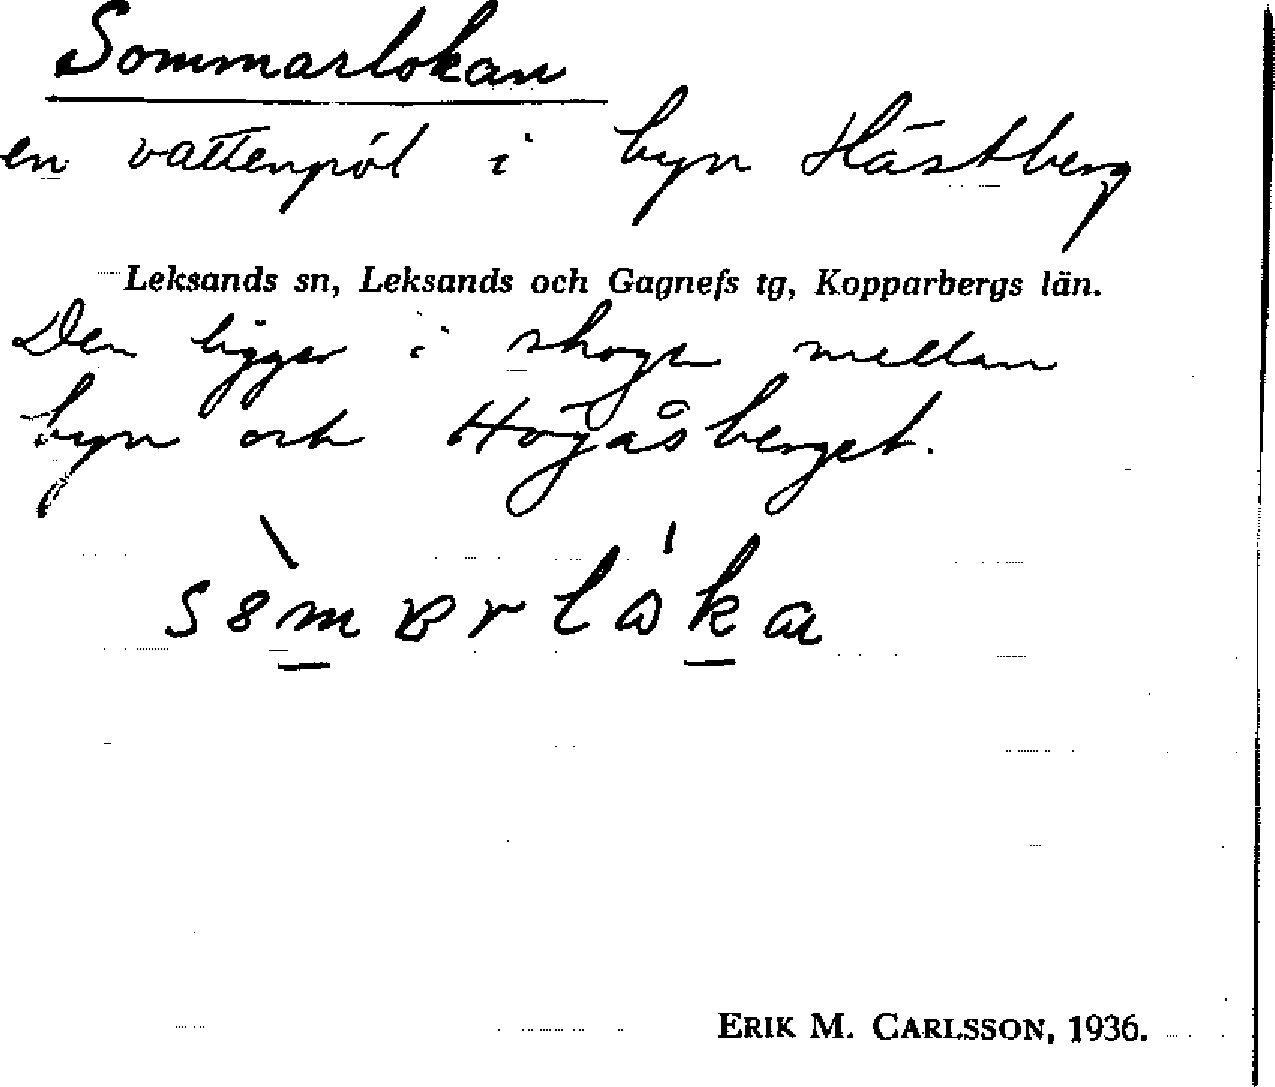 Sommarlokan
en vattenpöl i byn Hästberg
Leksands sn, Leksands och Gagnefs tg, Kopparbergs län.
Den ligger i skogen mellan
byn och Högåsberget.
ERIK M. CARLSSON, 1936.